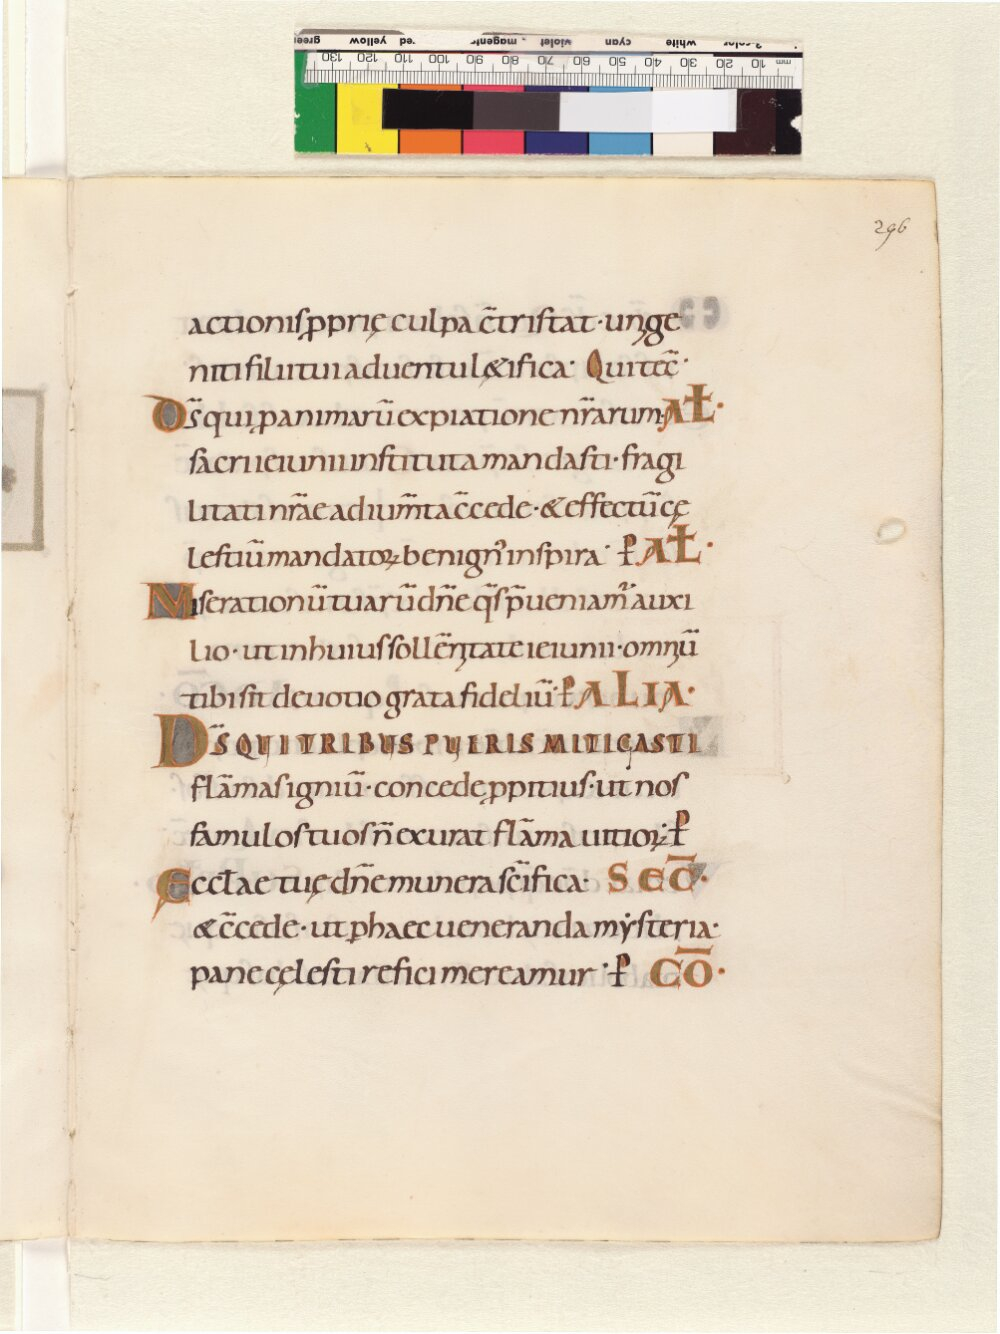 green yellow red magenta violet cyan white 3-color
130 120 110 100 90 80 70 60 50 40 30 20 10 mm
296
actionis ꝓprię culpa c̄tristat · unge
niti filii tui aduentu l&ifica · Qui tec̄ ·
D̄s qui ꝑ animarū expiatione nr̄arum AŁ ·
sacri ieiunii instituta mandasti · fragi
litati nr̄ae adium̄ta c̄cede · & effectū cę
lestiū mandatoꝝ benignꝰ inspira · ꝑ AŁ ·
Miserationū tuarū dn̄e q̄s p̄ueniamꝰ auxi
lio · ut in huius sollēntate ieiunii · omniū
tibi sit deuotio grata fideliū · ꝑ ALIA ·
D̄S QUI TRIBUS PUERIS MITIGASTI
flāmas igniū · concede ꝓpitius · ut nos
famulos tuos n̄ exurat flāma uitioꝝ · ꝑ
Eccłae tuę dn̄e munera sc̄ifica · SEC̄ ·
& c̄cede · ut ꝑ haec ueneranda mẏsteria ·
pane cęlesti refici mereamur · ꝑ CŌ ·